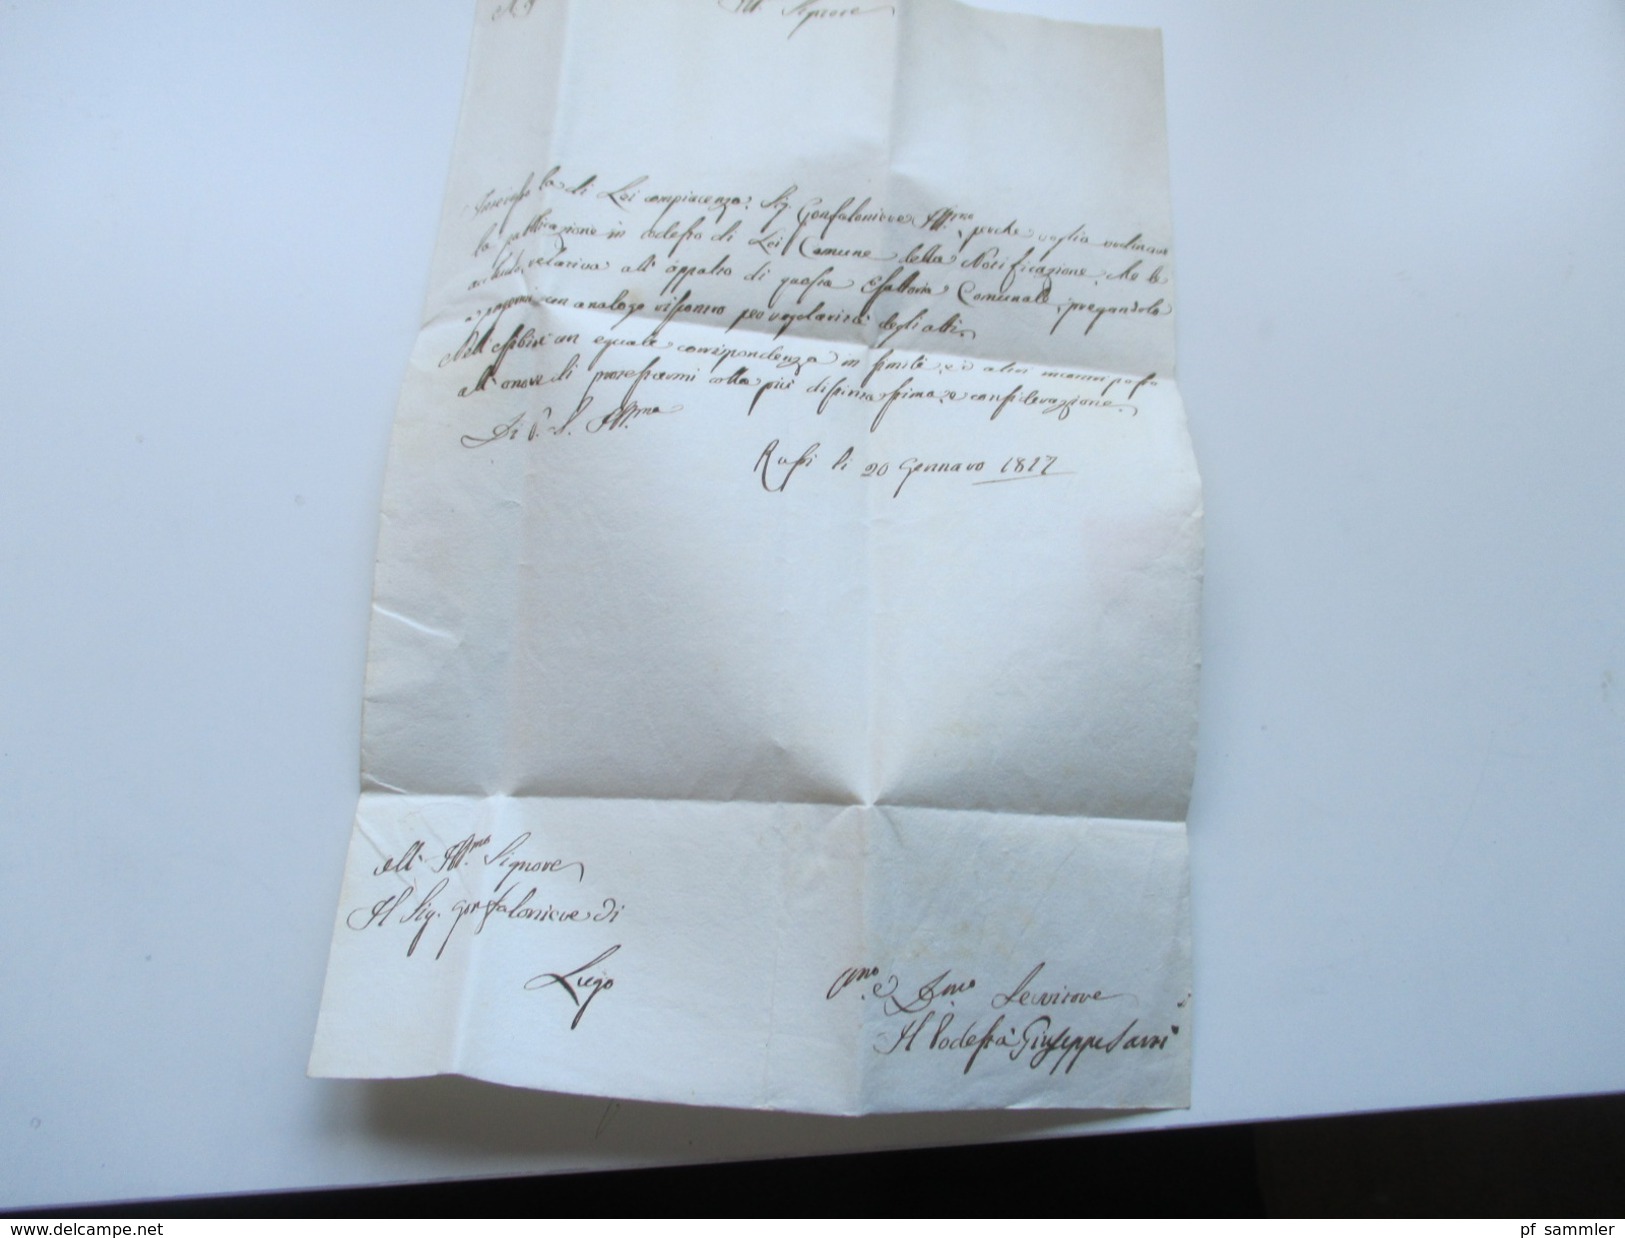 Ill.mo Signore
la di Lei compiacenza, Sig. Gonfaloniere Ill.mo, perchè voglia ordinare
la pubblicazione in codesta di Lei Comune della Notificazione, che le
acchiudo, relativa all' appalto di questa Esattoria Comunale, pregandola
con analogo riscontro per regolarità degli atti.
Nell' esibir con eguale corrispondenza in simile, ed altri incontri passo
all' onore di protestarmi colla più distintissima considerazione.
Di V. S. Ill.ma
Russi li 20 Gennaro 1817
All' Ill.mo Signore
Il Sig. Gonfaloniere di
Lugo
e Servitore
Il Podestà Giuseppe
delcampe.net
pf_sammler